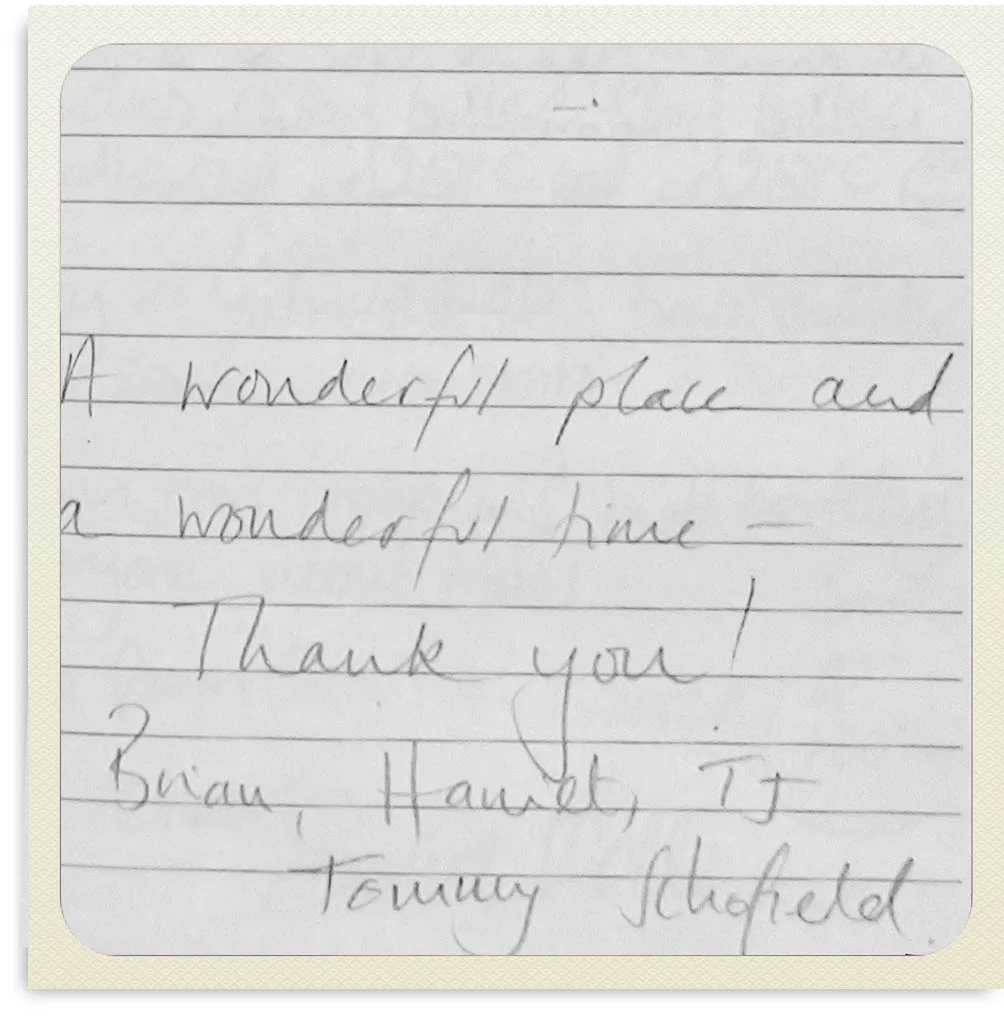 A wonderful place and
a wonderful time –
Thank you!
Brian, Harriet, TJ
Tommy Schofield.